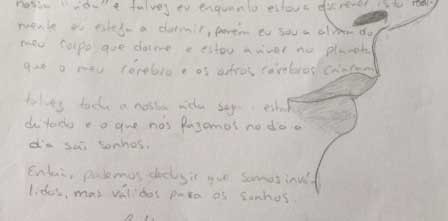 nossa "vida" e talvez eu enquanto estou a escrever isto real-
mente eu esteja a dormir, porém eu sou a alma do
meu corpo que dorme e estou a viver no planeta
que o meu cérebro e os outros cérebros criaram
talvez toda a nossa vida seja
de tudo e o que nós fazemos no dia a
dia são sonhos.
Então, podemos deduzir que somos invá-
lidos, mas válidos para os sonhos.